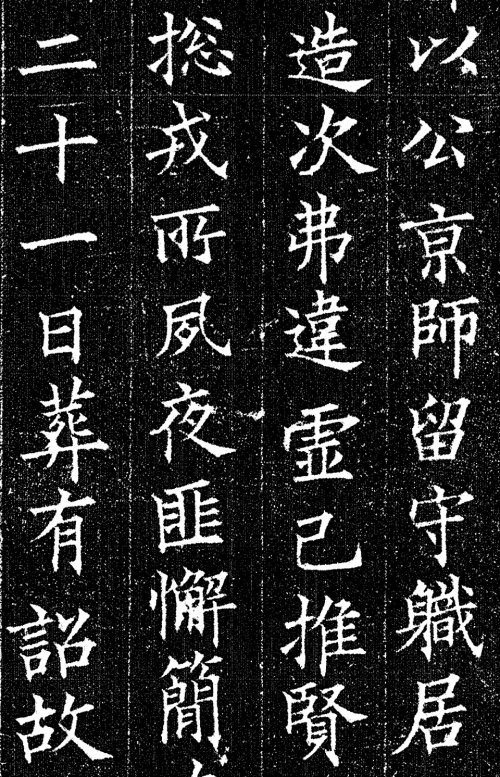 以公亰師留守軄居
造次弗違虚己推賢
捴戎所夙夜匪懈簡
二十一日葬有詔故